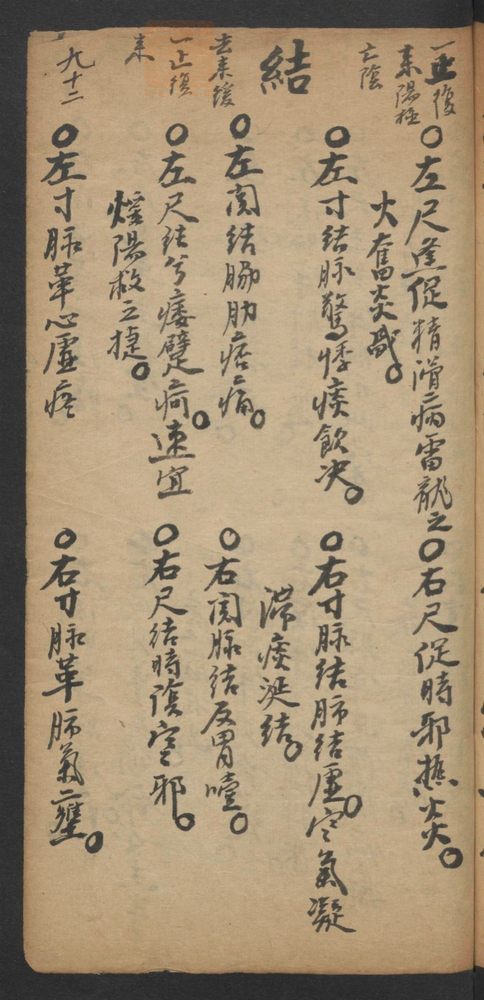 一止復
来陽極
亡陰
〇左尺逢促精滑病雷龍之
火奮炎哉。
〇右尺促時邪熱炎。
結
去来緩
一止復
来
〇左寸結脉驚悸痰飲决。
〇右寸脉結肺结壅。寒氣凝
滞痰涎結。
〇左関結脇肋痞痛。
〇右関脉结反胃噎。
〇左尺结兮痿躄疴。速宜
陽救之捷。
〇右尺结時陰寒邪。
九十二
〇左寸脉革心虛疼
〇右寸脉革肺氣壅。